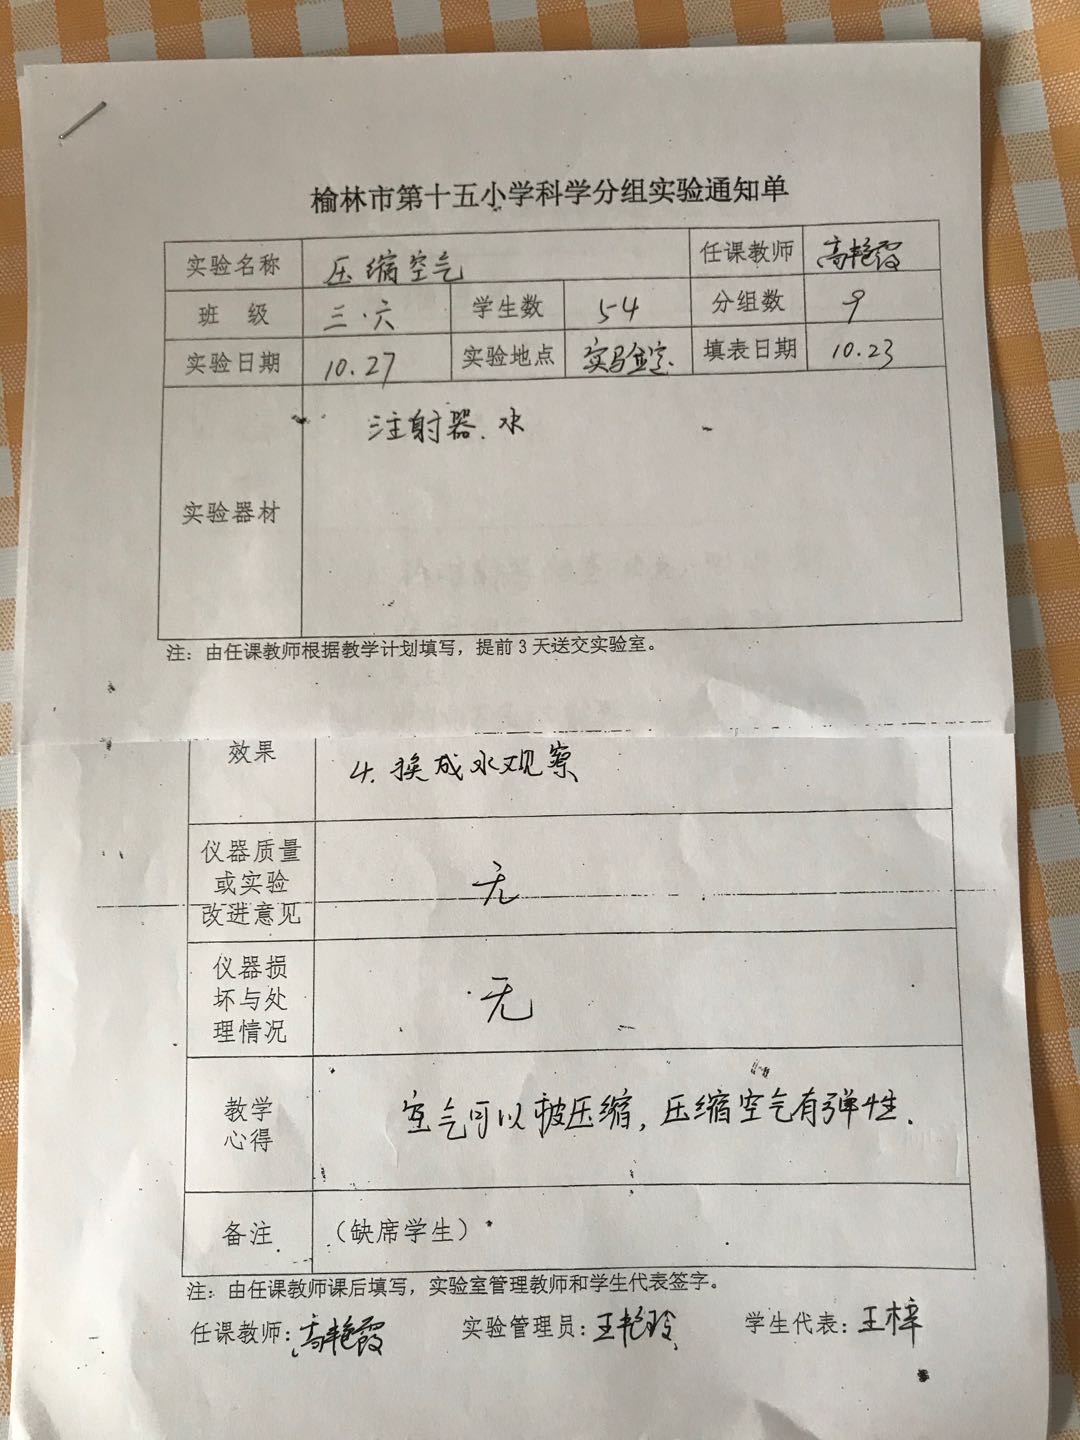 榆林市第十五小学科学分组实验通知单
实验名称 压缩空气 任课教师 高艳霞
班 级 三.六 学生数 54 分组数 9
实验日期 10.27 实验地点 实验室 填表日期 10.23
实验器材 注射器、水
注：由任课教师根据教学计划填写，提前3天送交实验室。
效果 4.换成水观察
仪器质量
或实验
改进意见 无
仪器损
坏与处
理情况 无
教学
心得 空气可以被压缩，压缩空气有弹性.
备注 （缺席学生）
注：由任课教师课后填写，实验室管理教师和学生代表签字。
任课教师：高艳霞 实验管理员：王艳玲 学生代表：王梓